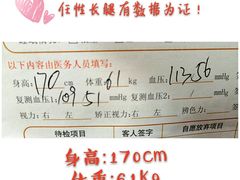 任性长腿有数据为证！
以下内容由医务人员填写:
身高:170cm 体重:61kg 血压:113,56mmHg
复测血压1:109 51mmHg 复测血压2: / mmHg
视力:右 左 矫正视力:右 左 辨色力:
待检项目 客人签字 自愿放弃项目
身高:170cm
体重:61Kg